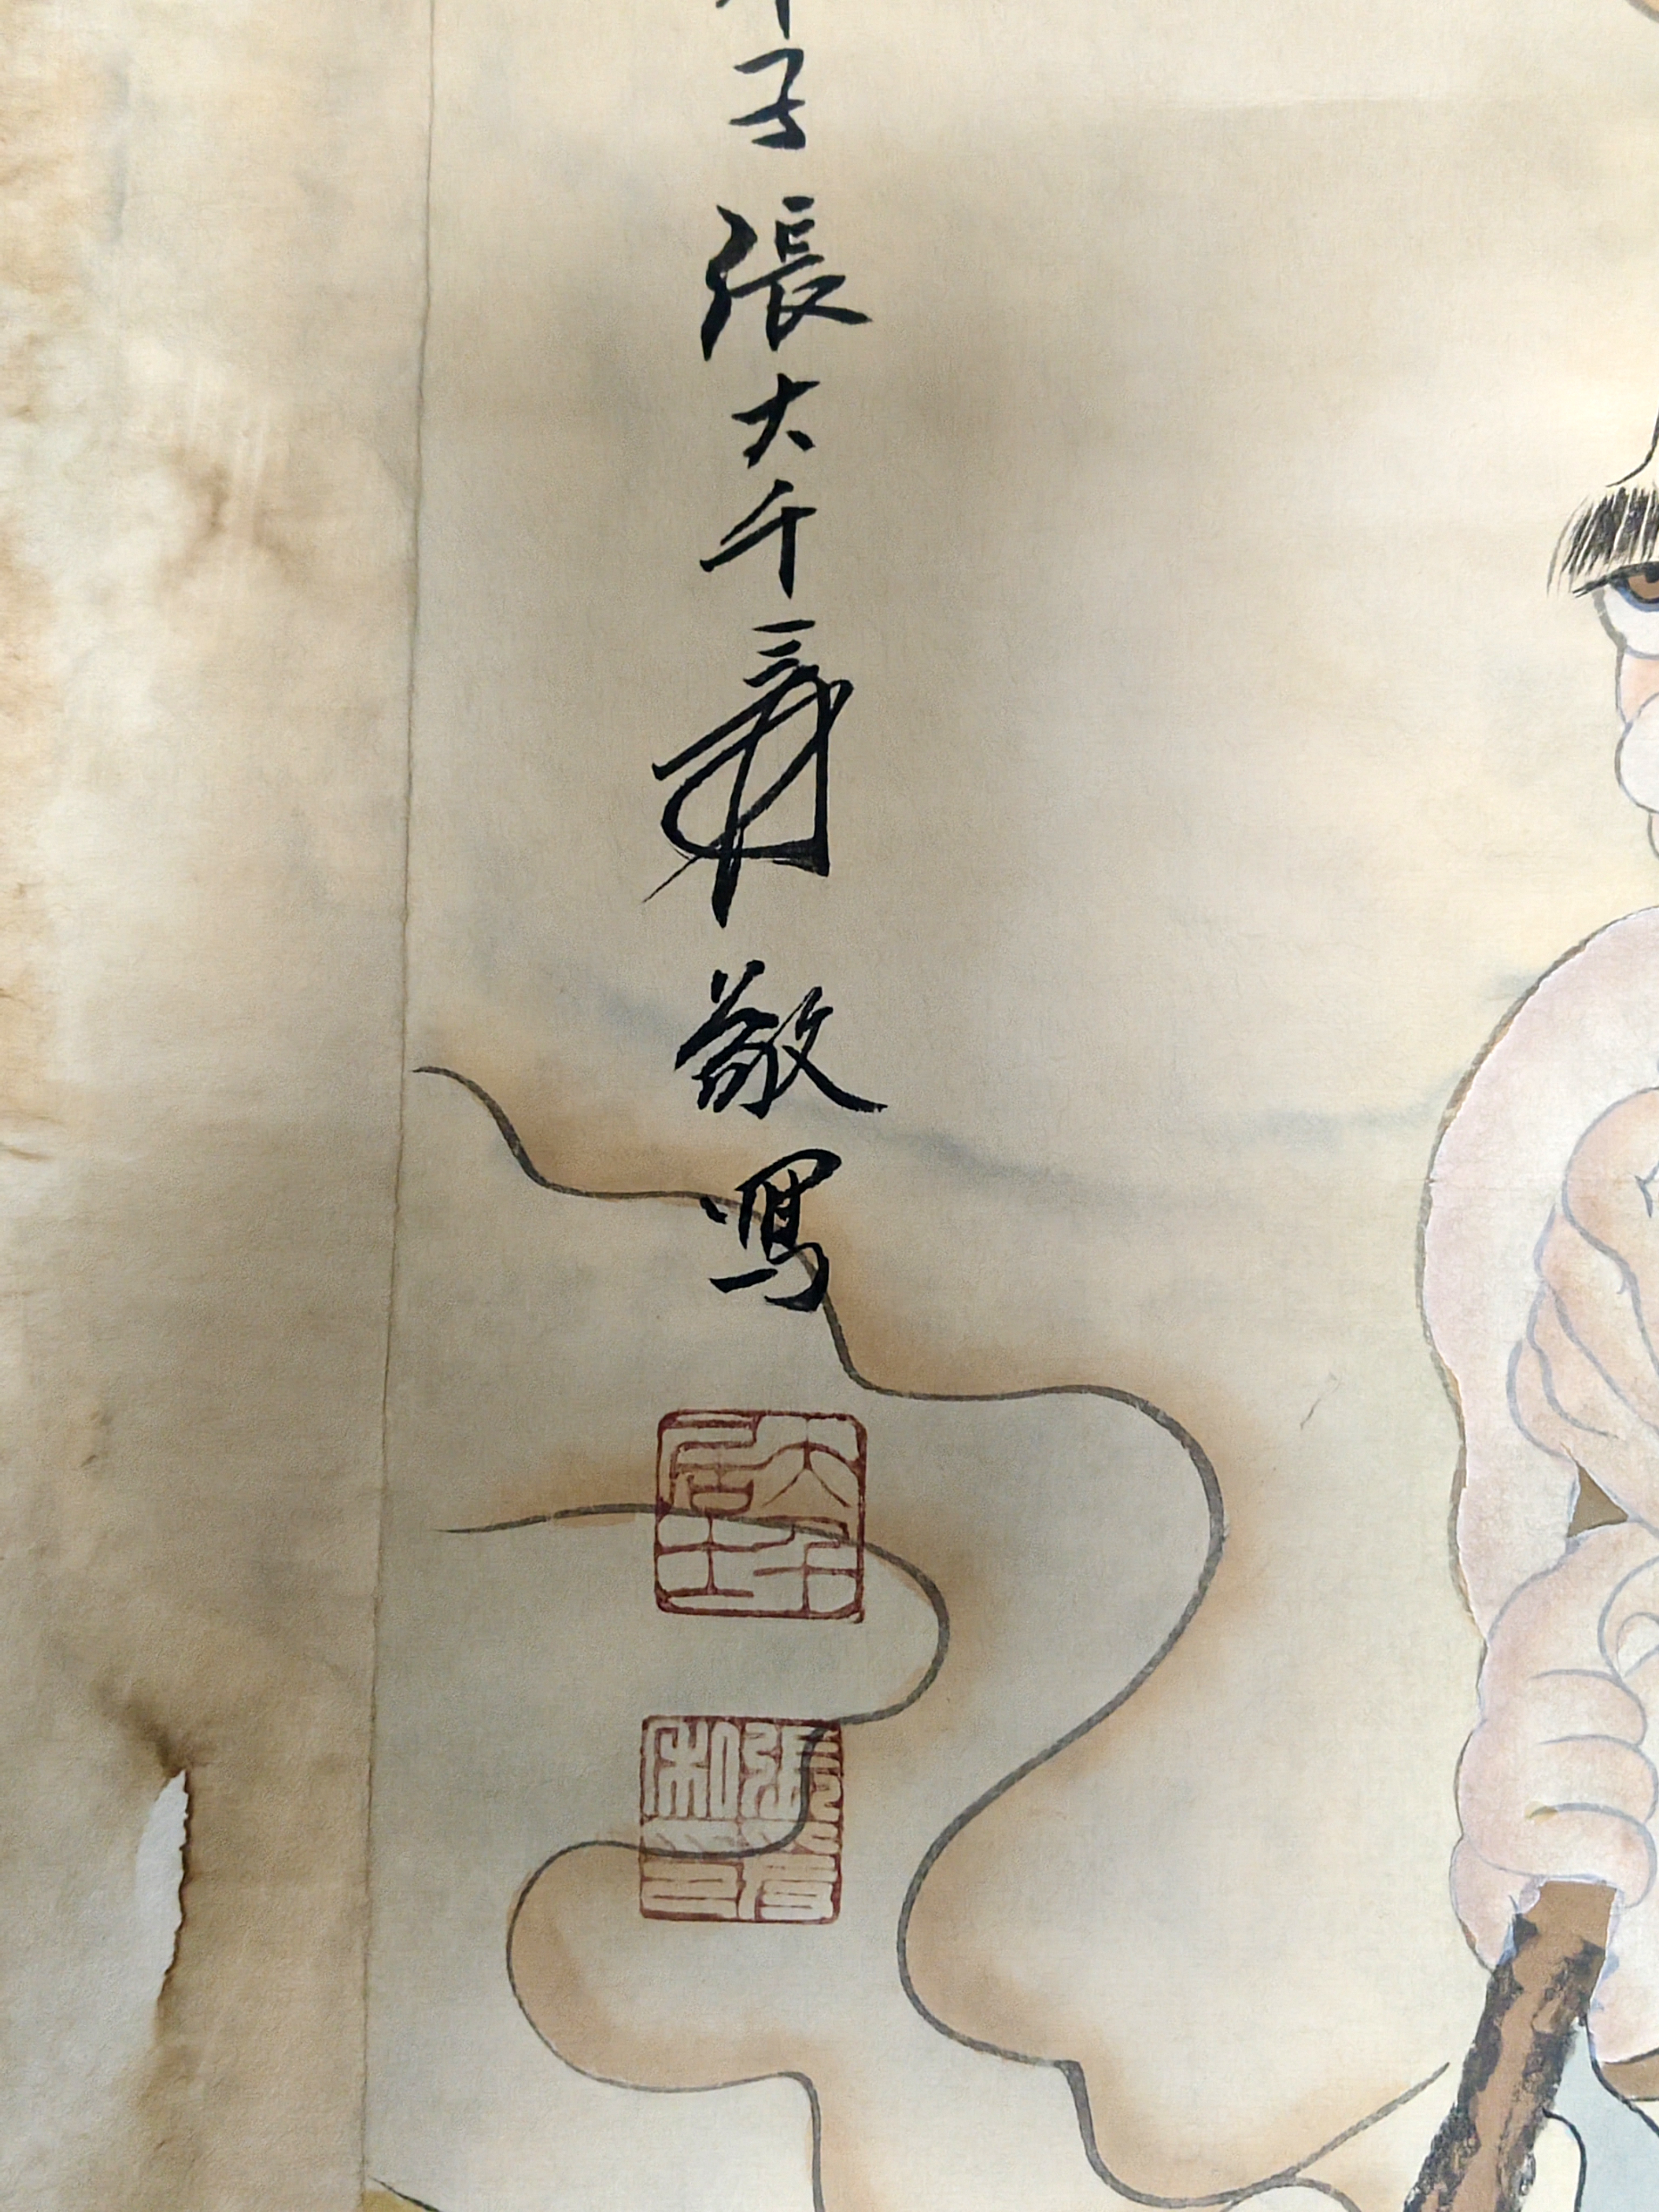 子張大千爰敬寫
大千居士
張爰